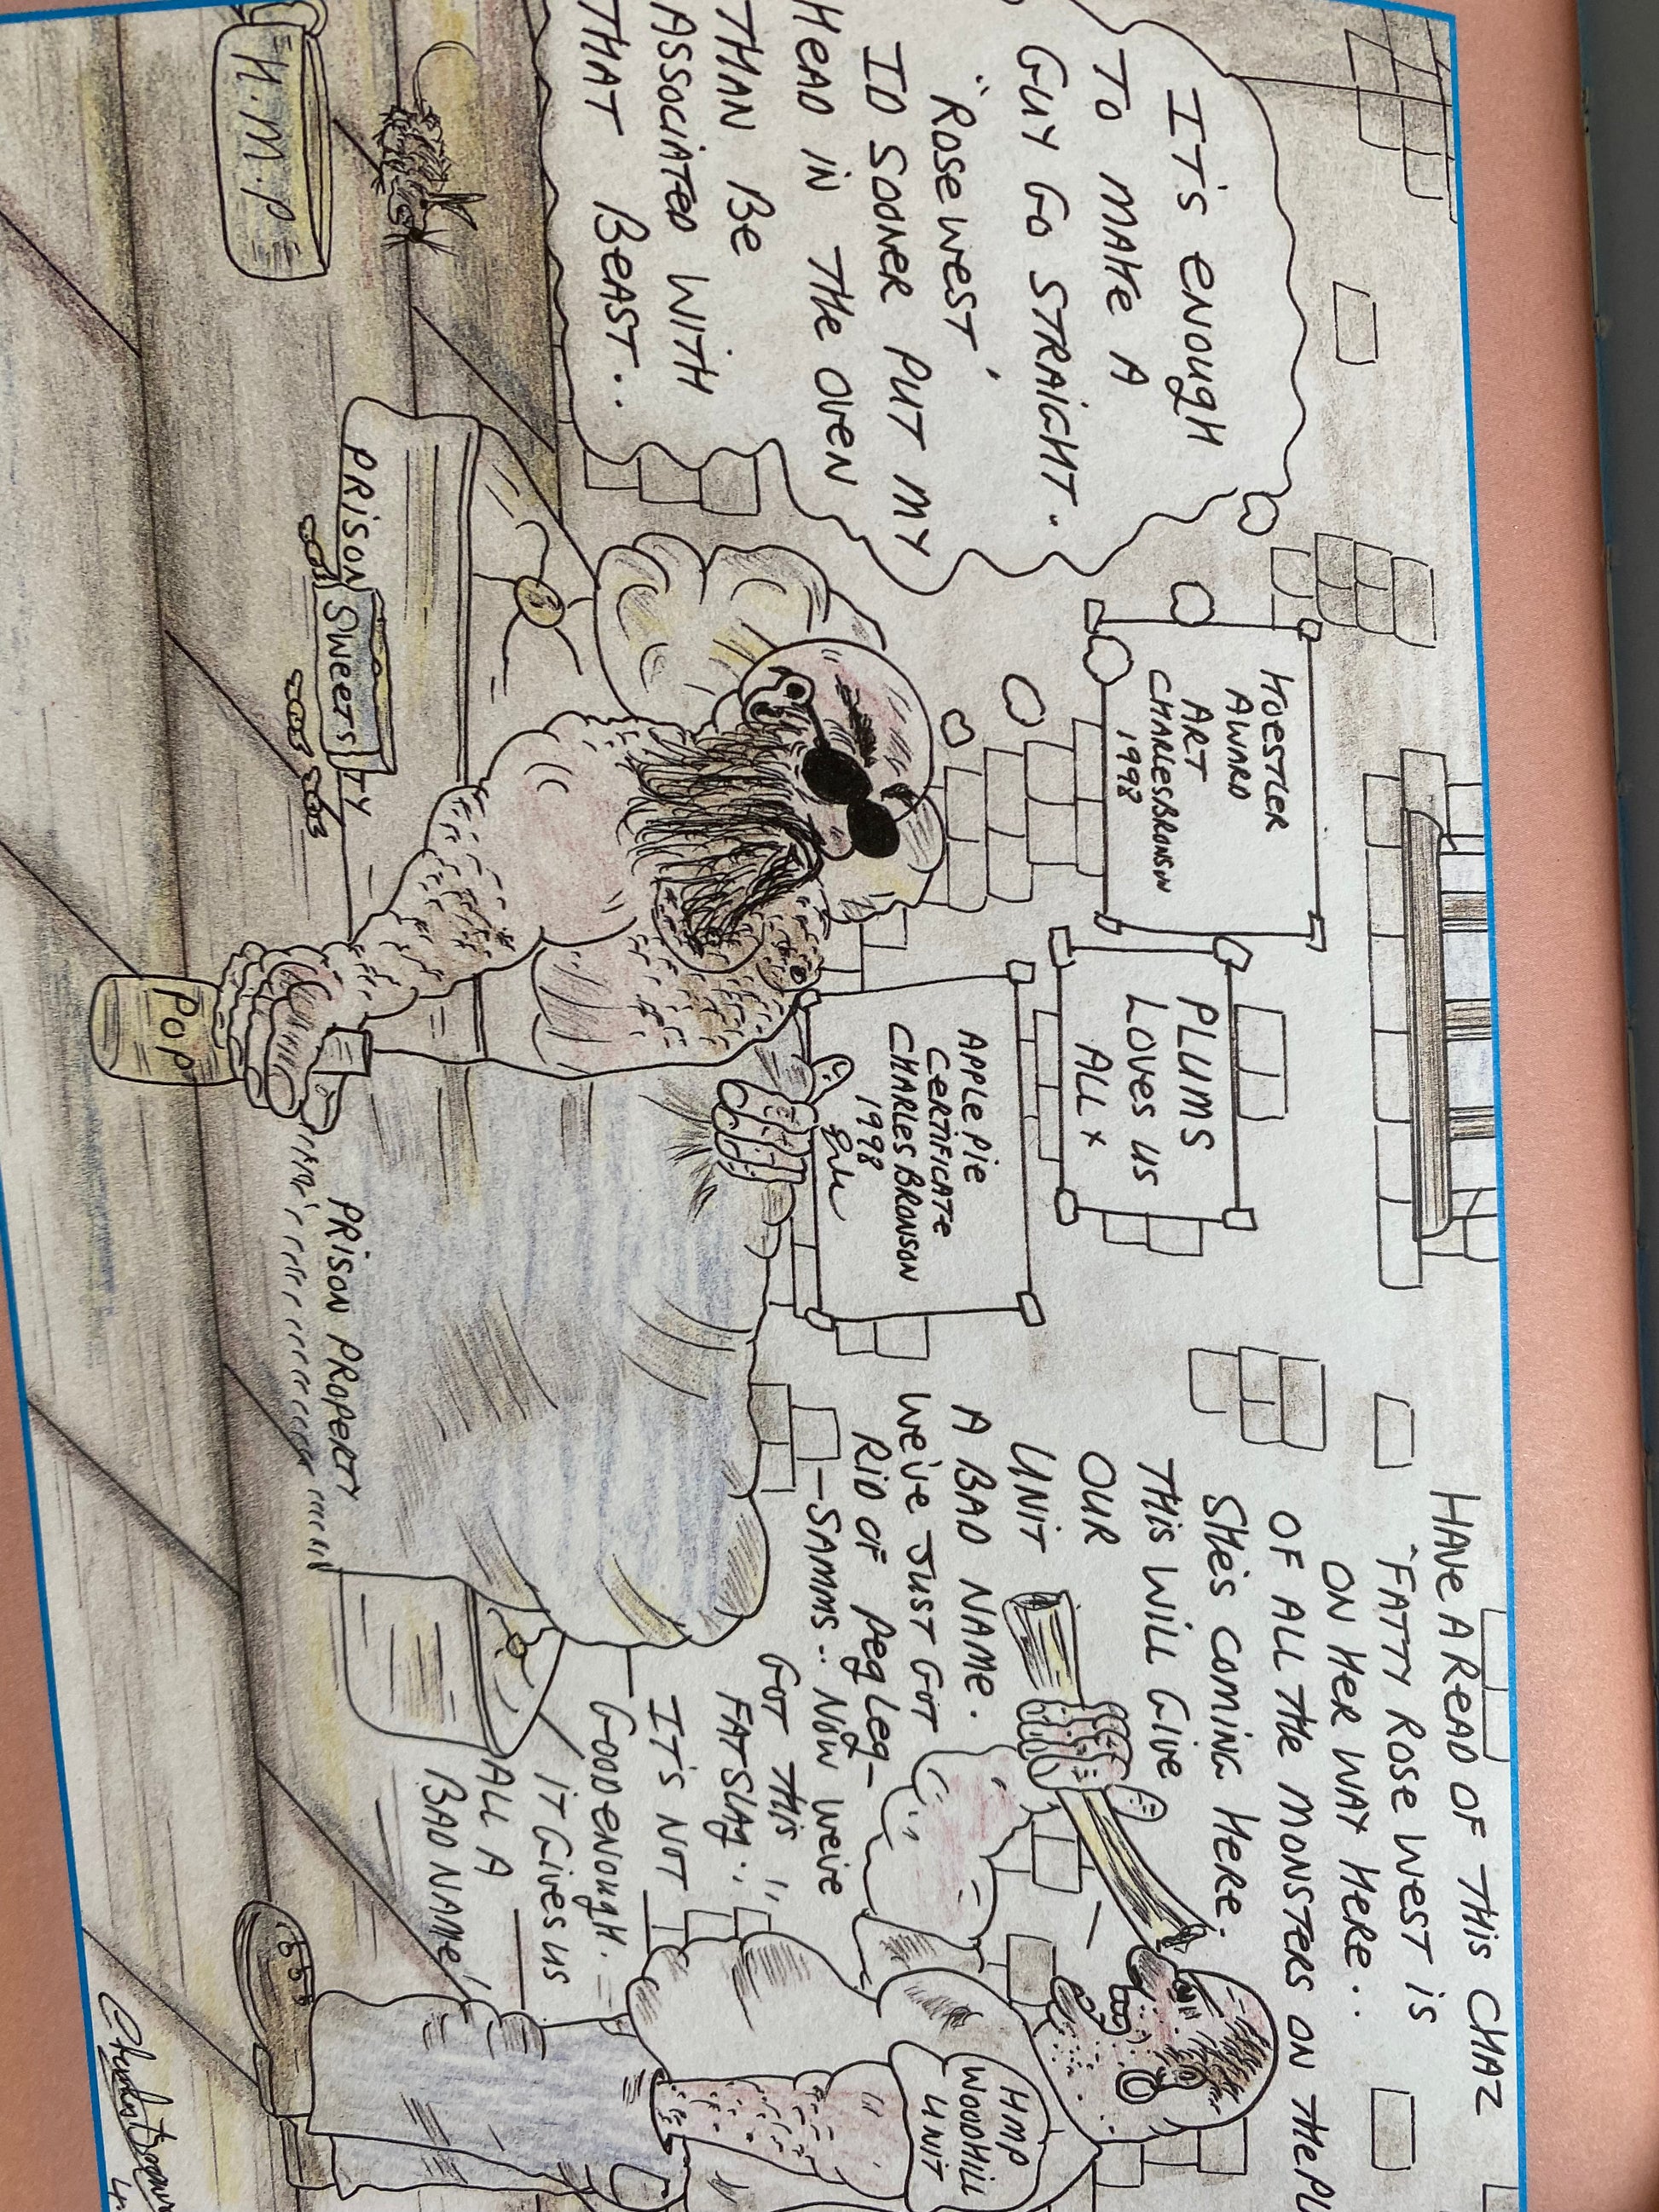 IT'S ENOUGH
TO MAKE A
GUY GO STRAIGHT.
'ROSE WEST'
I'D SOONER PUT MY
HEAD IN THE OVEN
THAN BE
ASSOCIATED WITH
THAT BEAST..
HOESTLER
AWARD
ART
CHARLES BRONSON
1998
PLUMS
LOVES US
ALL x
APPLE PIE
CERTIFICATE
CHARLES BRONSON
1998
HAVE A READ OF THIS CHAZ
'FATTY ROSE WEST IS
ON HER WAY HERE..
OF ALL THE MONSTERS ON THE
SHE'S COMING HERE.
THIS WILL GIVE
OUR
UNIT
A BAD NAME.
WE'VE JUST GOT
RID OF PEG LEG -
- SAMMS.. NOW WE'VE
GOT THIS
FAT SLAG..!!
IT'S NOT
GOOD ENOUGH.
IT GIVES US
ALL A
BAD NAME!
HMP
WOODHILL
UNIT
H.M.P
PRISON
SWEETS
TY
POP
PRISON PROPERTY
Charles Bronson